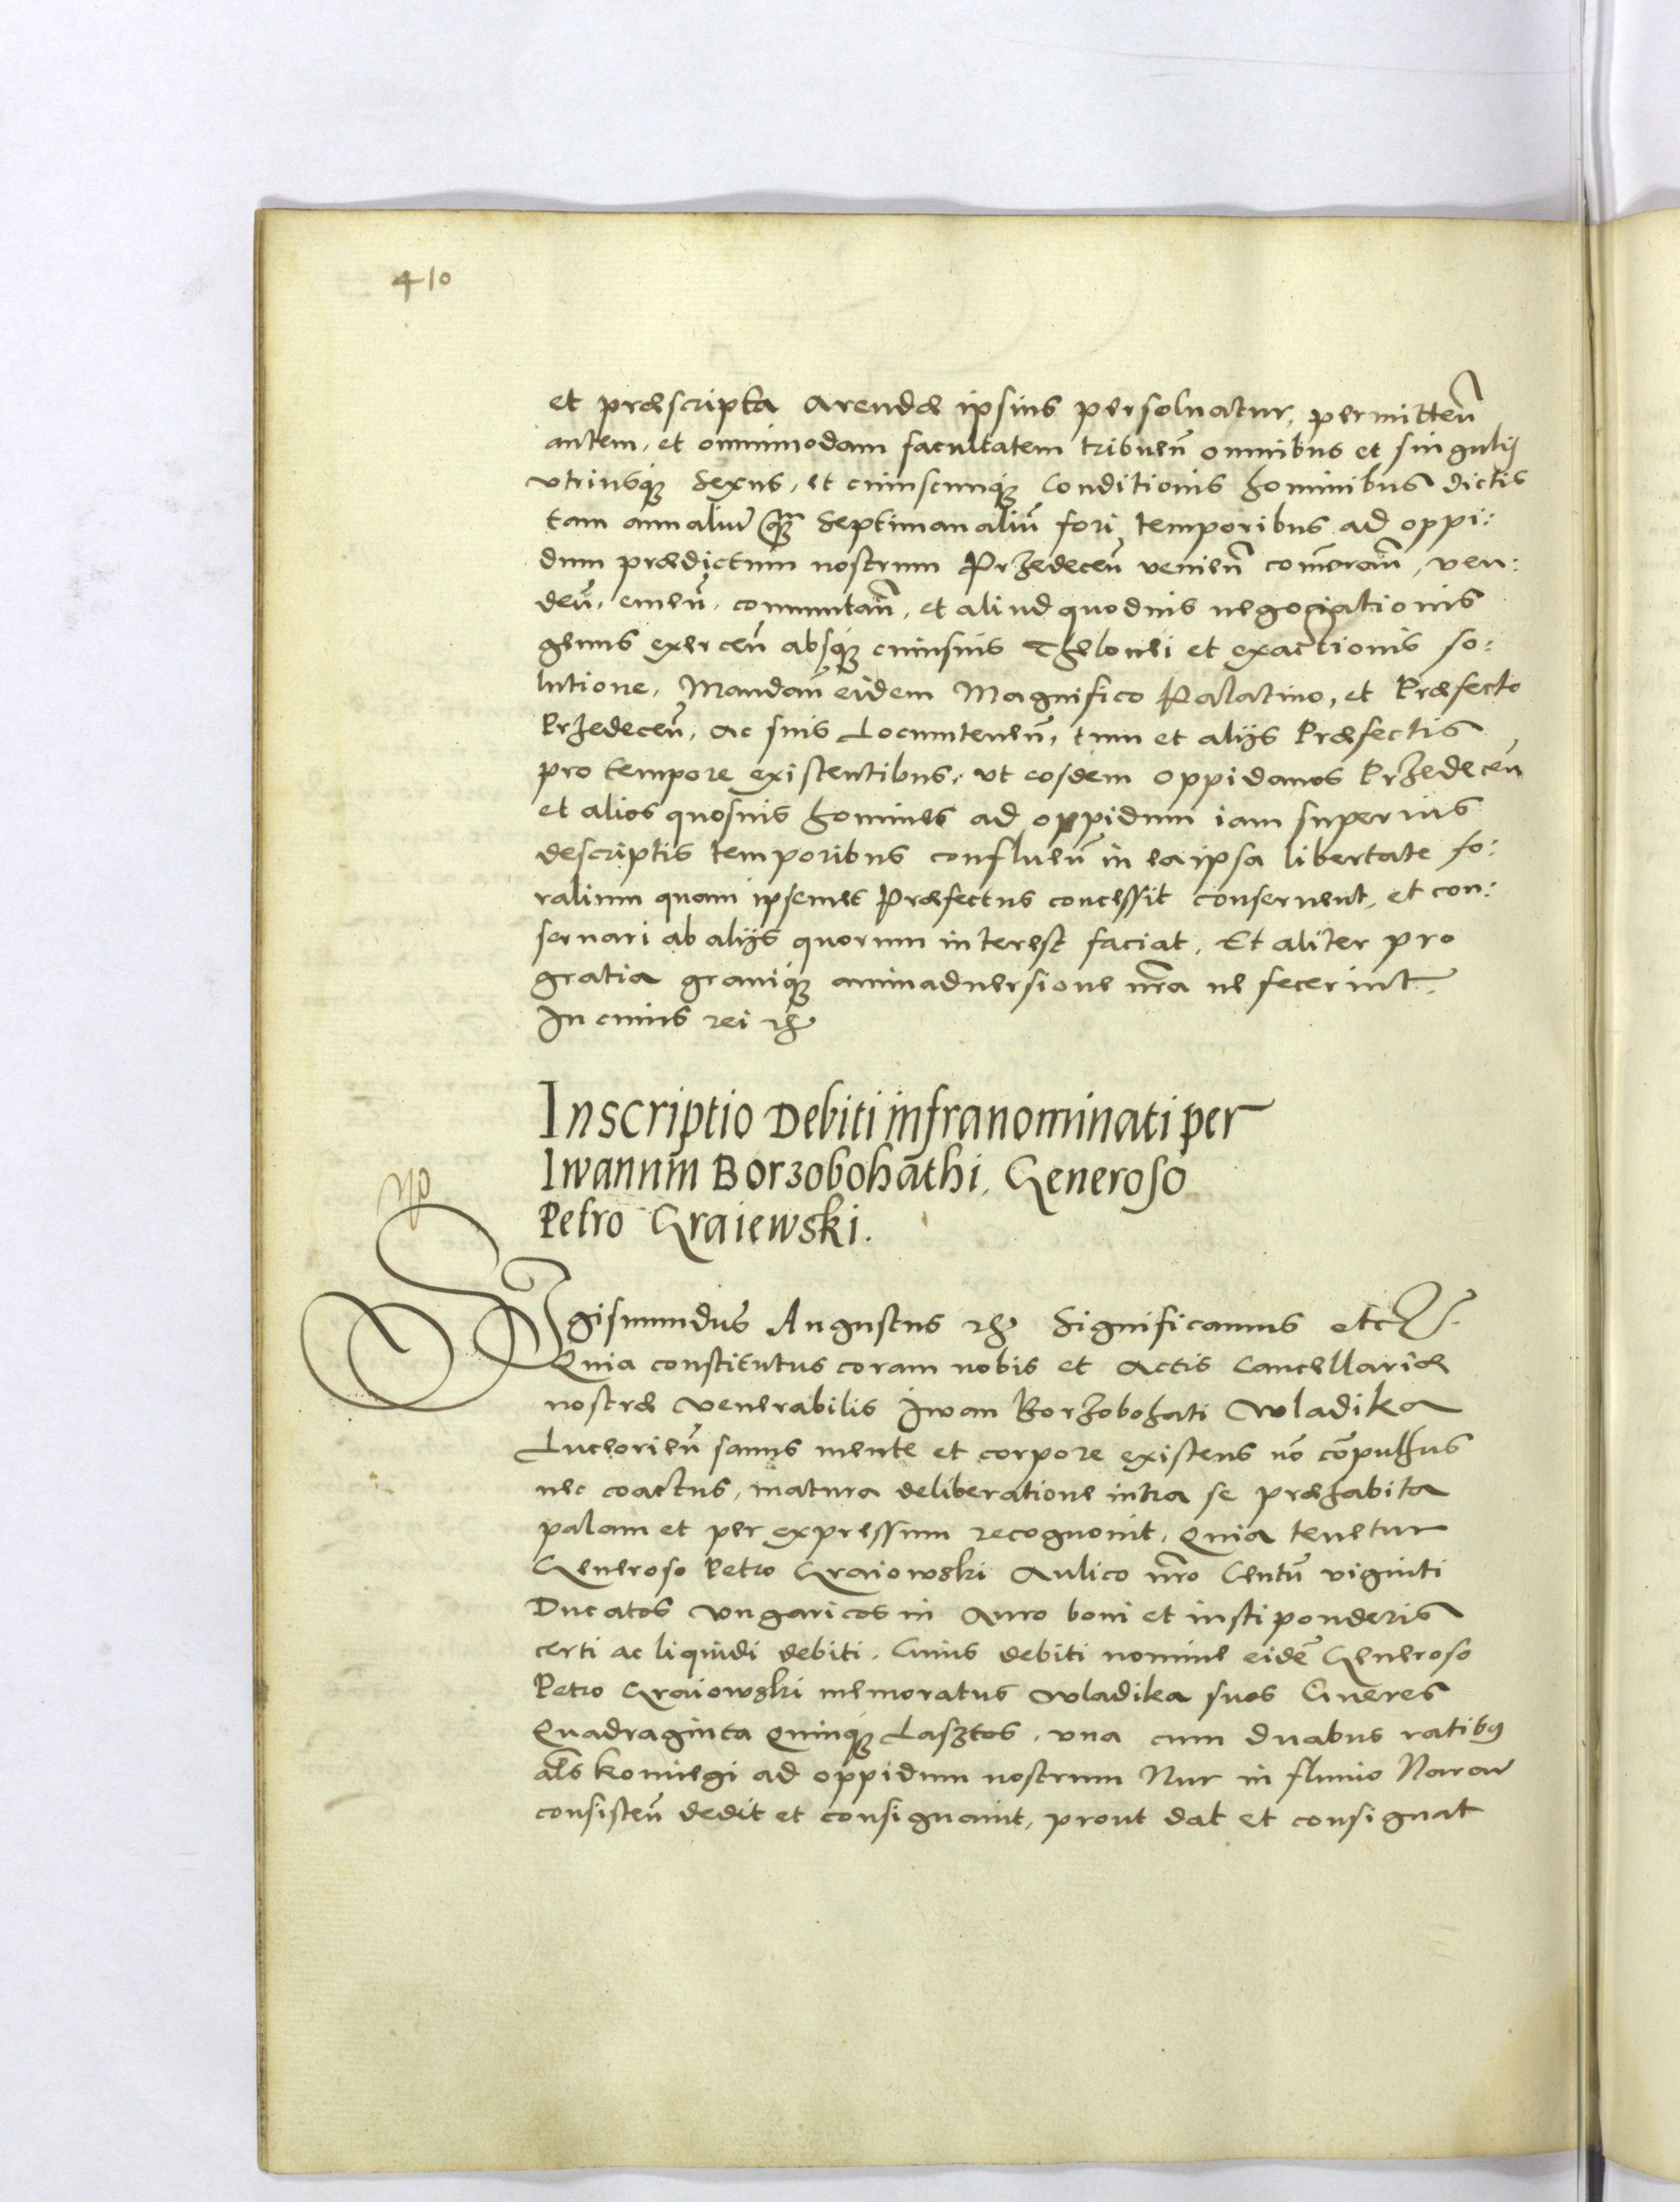 410
et præscripta arendæ ipsius persoluatur, permitteñ
autem, et omnimodam facultatem tribueñ omnibus et singulis
vtriusq; sexus, et cuiuscunq; Conditionis hominibus dictis
tam annaliũ q̃ septimanaliũ fori temporibus ad oppi:
dum prædictum nostrum Przedeceñ venieñ comẽrañ, ven:
deñ, emeñ, commutañ, et aliud quoduis negociationis
genus exerceñ absq; cuiusuis Thelonei et exactionis so:
lutione, Mandañ eidem Magnifico Palatino, et Præfecto
Przedeceñ, ac suis Locumteneñ, tum et alijs Præfectis
pro tempore existentibus, vt eosdem oppidanos Przedeceñ
et alios quosuis homines ad oppidum iam superius
descriptis temporibus conflueñ in ea ipsa libertate fo:
ralium quam ipsemet Præfectus concessit conseruent, et con:
seruari ab alijs quorum interest faciat, Et aliter pro
gratia grauiq; animaduersione nr̃a ne fecerint.
In cuius rei etc
Inscriptio Debiti infranominati per
Iwanum Borzobohathi, Generoso
Petro Graiewski.
Sigismundus Augustus etc Significamus etc.
Quia constitutus coram nobis et Actis Cancellariæ
nostræ Venerabilis Iwan Borzobohati Wladika
Luceorieñ sanus mente et corpore existens nõ cõpulsus
nec coactus, matura deliberatione intra se præhabita
palam et per expressum recognouit, Quia tenetur
Generoso Petro Graiowski Aulico nr̃o Centũ viginti
Ducatos Vngaricos in Auro boni et iusti ponderis
certi ac liquidi debiti. Cuius debiti nomine eidẽ Generoso
Petro Graiowski memoratus Wladika suos Cineres
Quadraginta Quinq; Lasztos, vna cum duabus ratibus
als̃ Komiegi ad oppidum nostrum Nur in fluuio Narew
consisteñ dedit et consignauit, prout dat et consignat